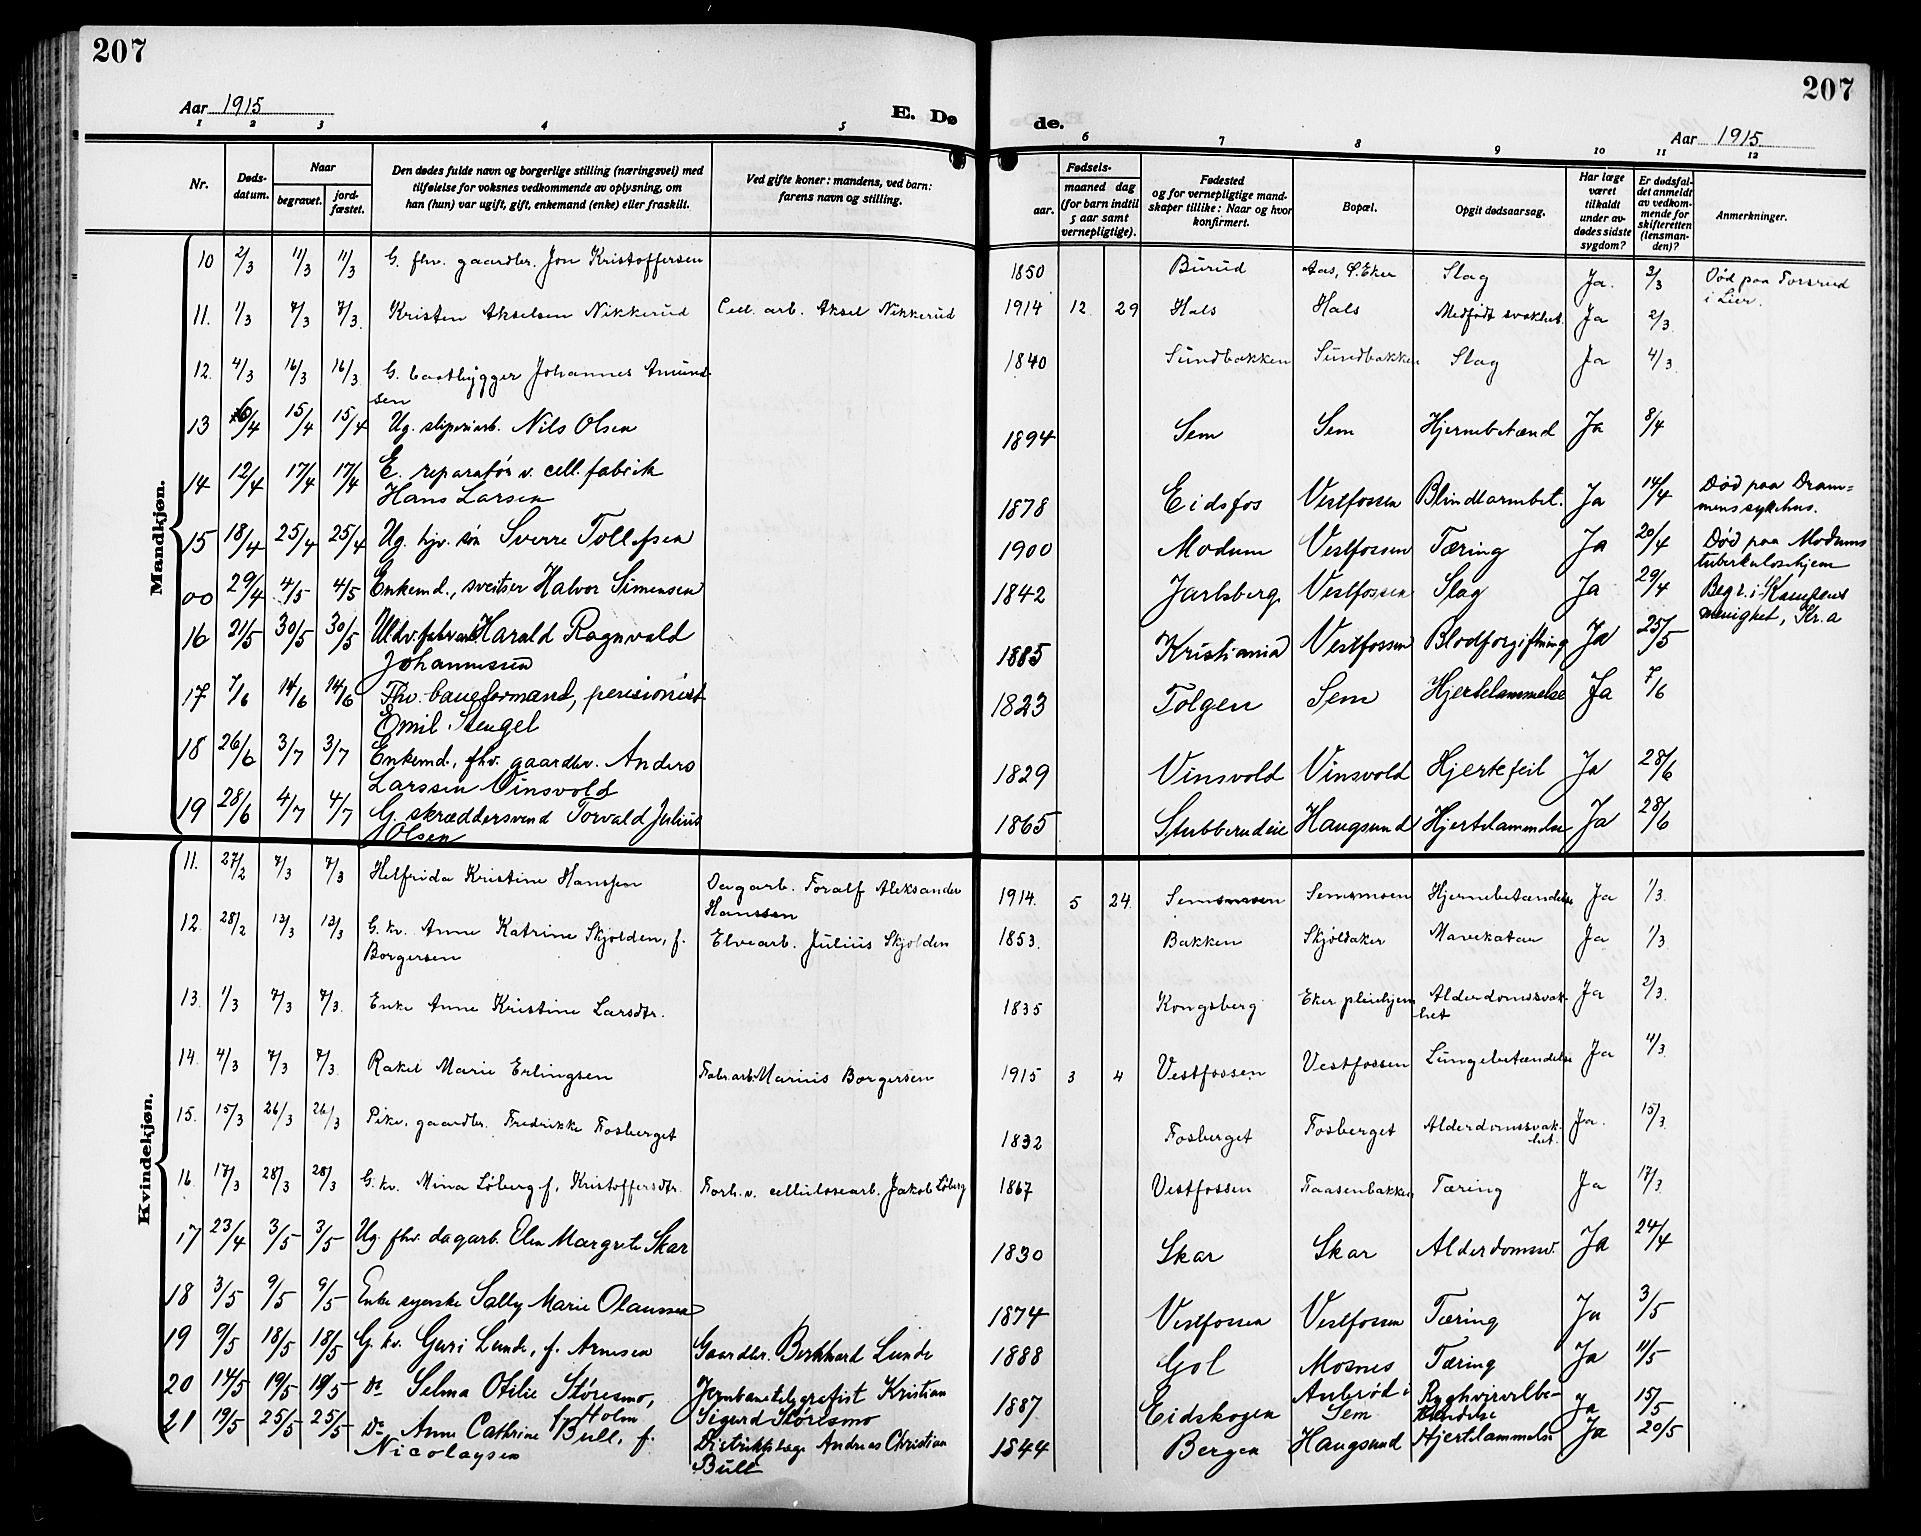 207
207
Aar 1915
E. Dø
de.
Aar 1915
1 2 3 4 5 6 7 8 9 10 11 12
Nr.
Døds-
datum.
Naar
begravet.
jord-
fæstet.
Den dødes fulde navn og borgerlige stilling (næringsvei) med
tilføielse for voksnes vedkommende av oplysning, om
han (hun) var ugift, gift, enkemand (enke) eller fraskilt.
Ved gifte koner: mandens, ved barn:
farens navn og stilling.
Fødsels-
aar.
maaned dag
(for barn indtil
5 aar samt
vernepligtige).
Fødested
og for vernepligtige mand-
skaper tillike: Naar og hvor
konfirmert.
Bopæl.
Opgit dødsaarsag.
Har læge
været
tilkaldt
under av-
dødes sidste
sygdom?
Er dødsfal-
det anmeldt
av vedkom-
mende for
skifteretten
(lensman-
den)?
Anmerkninger.
Mandkjøn.
10 2/3 11/3 11/3 G. fhv. gaardbr. Jon Kristoffersen 1850 Burud Aas, S. Eker Slag Ja. 3/3 Død paa Forsrud
i Lier.
11. 1/3 7/3 7/3. Kristen Akselsen Nikkerud Cell. arb. Aksel Nikkerud 1914 12. 29 Hals Hals Medfødt svakhet. Ja 2/3.
12. 4/3 16/3 16/3 G. baatbygger Johannes Amund-
sen 1840 Sundbakken Sundbakken Slag Ja 4/3.
13 6/4 15/4 15/4 Ug. sliperiarb. Nils Olsen 1894 Sem Sem Hjernebetænd Ja 8/4
14 12/4 17/4 17/4 E. reparatør v. cell. fabrik
Hans Larsen 1878 Eidsfos Vestfossen Blindtarmbet. Ja 14/4 Død paa Dram=
mens sykehus.
15 18/4 25/4 25/4 Ug. hjv. søn Sverre Tollefsen 1900 Modum Vestfossen Tæring Ja 20/4 Død paa Modums
tuberkulosehjem
00 29/4 4/5 4/5 Enkemd., sveitser Halvor Simensen 1842 Jarlsberg Vestfossen Slag Ja 29/4 Begr. i Kampens
menighet, Kr.a
16 21/5 30/5 30/5 Harald Ragnvald
Johannessen 1885 Kristiania Vestfossen Blodforgiftning Ja 25/5
17 7/6 14/6 14/6 Fhv. baneformand, pensionist
Emil Stengel 1823 Tolgen Sem Hjertelammelse Ja 7/6
18 26/6 3/7 3/7 Enkemd., fhv. gaardbr. Anders
Larssen Vinsvold 1829 Vinsvold Vinsvold Hjertefeil Ja 28/6
19 28/6 4/7 4/7 G. skræddersvend Torvald Julius
Olsen 1865 Stubberudeie Haugsund Hjertelammelse Ja 28/6
Kvindekjøn.
11. 27/2 7/3 7/3 Helfrida Kristine Hanssen Dagarb. Toralf Aleksander
Hanssen 1914. 5 24. Semsmoen Semsmoen Hjernebetændelse Ja 1/3.
12. 28/2 13/3 13/3 G. kv. Anne Katrine Skjolden, f.
Borgersen Elvearb. Julius Skjolden 1853. Bakken Skjøldaker Mavekatar Ja 1/3.
13. 1/3 7/3 7/3. Enke Anne Kristine Larsdtr. 1835 Kongsberg Eker pleiehjem Alderdomssvak-
het Ja 2/3.
14. 4/3 7/3 7/3. Rakel Marie Erlingsen Fabr.arb. Marius Borgersen 1915 3 4 Vestfossen Vestfossen Lungebetændelse Ja 11/3.
15. 15/3 26/3 26/3 Pike, gaardbr. Fredrikke Fosberget 1832 Fosberget Fosberget Alderdomssvak-
het. Ja. 15/3.
16. 17/3 28/3 28/3 G. kv. Mina Løberg f. Kristoffersdtr. Forh.v. cellulosearb. Jakob Løberg 1867 Vestfossen Faasenbakken Tæring Ja 17/3.
17 23/4 3/5 3/5 Ug. fhv. dagarb. Elen Margrete Skar 1830 Skar Skar Alderdomssv. Ja 24/4
18 3/5 9/5 9/5 Enke syerske Sally Marie Olaussen 1874 Vestfossen Vestfossen Tæring Ja 3/5
19 9/5 18/5 18/5 G. kv. Guri Lunde, f. Arnesen Gaardbr. Berkhard Lunde 1888 Gol Mosnes Tæring Ja 11/5
20 14/5 19/5 19/5 Do Selma Otilie Støresmo,
f. Holm Jernbanetelegrafist Kristian
Sigurd Støresmo 1887 Eidskogen i
Sem Ryghvirvelbe-
tændelse Ja 15/5
21 19/5 25/5 25/5 Do Anne Cathrine Bull, f.
Nicolaysen Distriktslæge Andreas Christian
Bull 1844 Bergen Haugsund Hjertelammelse Ja 20/5